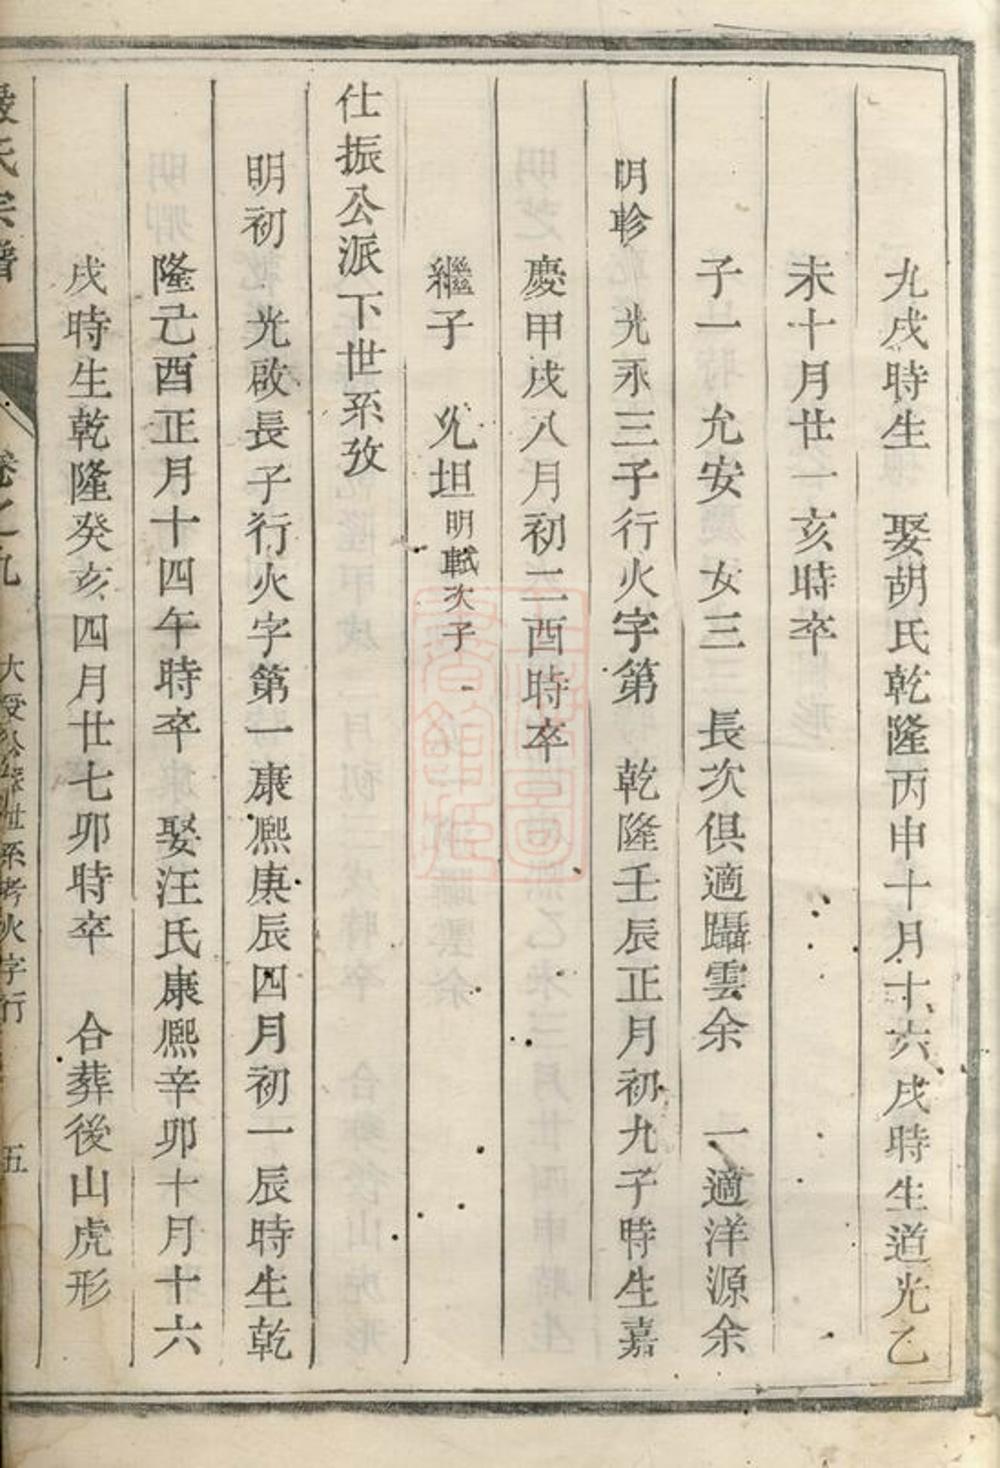 九戌時生 娶胡氏乾隆丙申十月十六戌時生道光乙
未十月廿一亥時卒
子一 允安 女三 長次俱適躡雲余 一適洋源余
明畛 光永三子行火字第 乾隆壬辰正月初九子時生嘉
慶甲戌八月初二酉時卒
繼子 允坦明軾次子
仕振公派下世系攷
明初 光啟長子行火字第一康熙庚辰四月初一辰時生乾
隆己酉正月十四午時卒 娶汪氏康熙辛卯十月十六
戌時生乾隆癸亥四月廿七卯時卒 合葬後山虎形
氏宗譜 卷之九 火字行 五